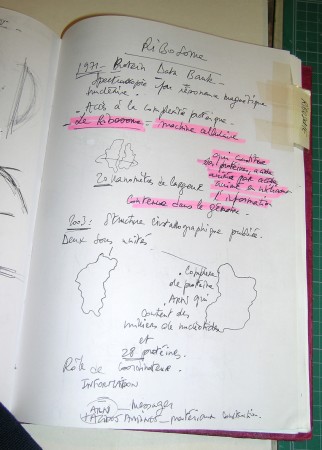 RiBoSome
1971 - Protein Data Bank.
Spectroscopie par résonance magnétique
nucléaire.
- Accès à la complexité protéique.
- Le Ribosome = machine cellulaire
qui
protéines, acide
aminé par acide
aminé en
l'information
contenue dans le génome.
20 nanomètres de largeur
Structure cristallographique publiée.
Deux sous unités
. Complexe
de protéine
. ARN qui
contient des
milliers de nucléotides
et
28 protéines.
Rôle de Coordinateur.
INFORMATION
ARN - messager
ACIDES AMINÉS - matériaux construction.